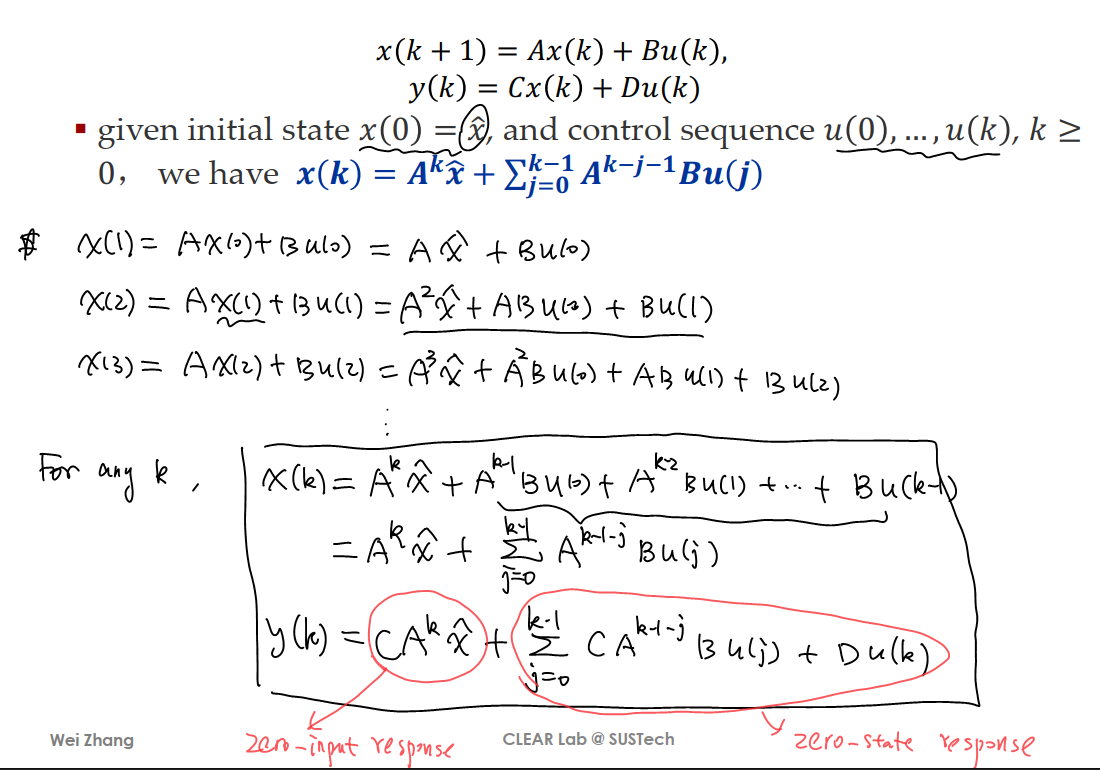 x(k + 1) = Ax(k) + Bu(k),
y(k) = Cx(k) + Du(k)
▪ given initial state x(0) = x̂, and control sequence u(0), ..., u(k), k ≥
0， we have x(k) = A^k x̂ + ∑_{j=0}^{k−1} A^{k−j−1} Bu(j)
x(1) = Ax(0) + Bu(0) = A x̂ + Bu(0)
x(2) = Ax(1) + Bu(1) = A²x̂ + ABu(0) + Bu(1)
x(3) = Ax(2) + Bu(2) = A³x̂ + A²Bu(0) + ABu(1) + Bu(2)
⋮
For any k, x(k) = A^k x̂ + A^{k-1}Bu(0) + A^{k-2}Bu(1) + ··· + Bu(k-1)
= A^k x̂ + ∑_{j=0}^{k-1} A^{k-1-j} Bu(j)
y(k) = CA^k x̂ + ∑_{j=0}^{k-1} CA^{k-1-j} Bu(j) + Du(k)
zero-input response zero-state response
Wei Zhang CLEAR Lab @ SUSTech